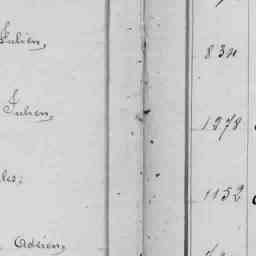 Julien, 830
Julien, 1278
les, 1152
Adrien,